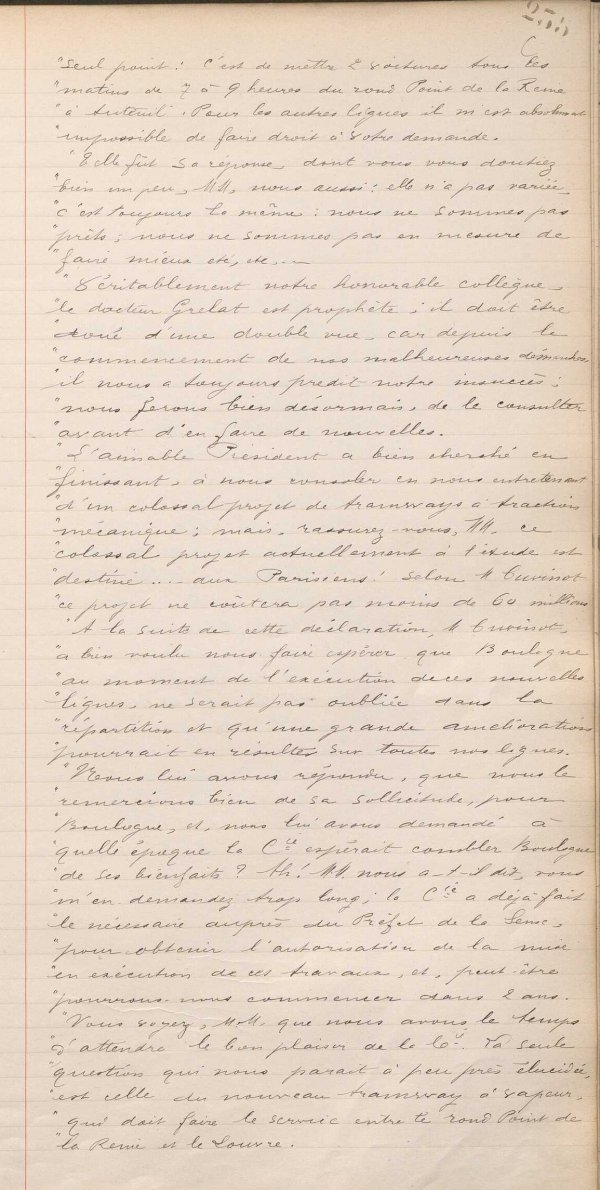 255
"seul point: c'est de mettre 2 voitures tous les
"matins de 7 à 9 heures du rond Point de la Reine
"à Auteuil. Pour les autres lignes il m'est absolument
"impossible de faire droit à votre demande.
"Telle fût sa réponse, dont vous vous doutiez
"bien un peu, MM, nous aussi: elle n'a pas variée
"c'est toujours la même: nous ne sommes pas
"prêts; nous ne sommes pas en mesure de
"faire mieux etc, etc...
"Véritablement notre honorable collègue,
"le docteur Grelat est prophète; il doit être
"doué d'une double vue, car depuis le
"commencement de nos malheureuses démarches
"il nous a toujours prédit notre insuccès;
"nous ferons bien désormais, de le consulter
"avant d'en faire de nouvelles.
"L'aimable Président a bien cherché en
"finissant, à nous consoler en nous entretenant
"d'un colossal projet de tramways à traction
"mécanique; mais, rassurez-vous, MM. ce
"colossal projet actuellement à l'étude est
"destiné .... aux Parisiens! selon M Cuvinot
"ce projet ne coûtera pas moins de 60 millions
"A la suite de cette déclaration, M Cuvinot,
"a bien voulu nous faire espérer que Boulogne
"au moment de l'exécution de ces nouvelles
"lignes, ne serait pas oubliée dans la
"répartition et qu'une grande amélioration
"pourrait en résulter sur toutes nos lignes.
"Nous lui avons répondu, que nous le
"remercions bien de sa sollicitude, pour
"Boulogne, et, nous lui avons demandé à
"quelle époque la Cie espérait combler Boulogne
"de ses bienfaits? Ah! MM nous a-t-il dit, vous
"m'en demandez trop long; la Cie a déjà fait
"le nécessaire auprès du Préfet de la Seine,
"pour obtenir l'autorisation de la mise
"en exécution de ces travaux, et, peut-être
"pourrons-nous commencer dans 2 ans.
"Vous voyez, MM. que nous avons le temps
"d'attendre le bon plaisir de la Cie. La seule
"question qui nous parait à peu près élucidée,
"est celle du nouveau tramway à vapeur,
"qui doit faire le service entre le rond Point de
"la Reine et le Louvre.